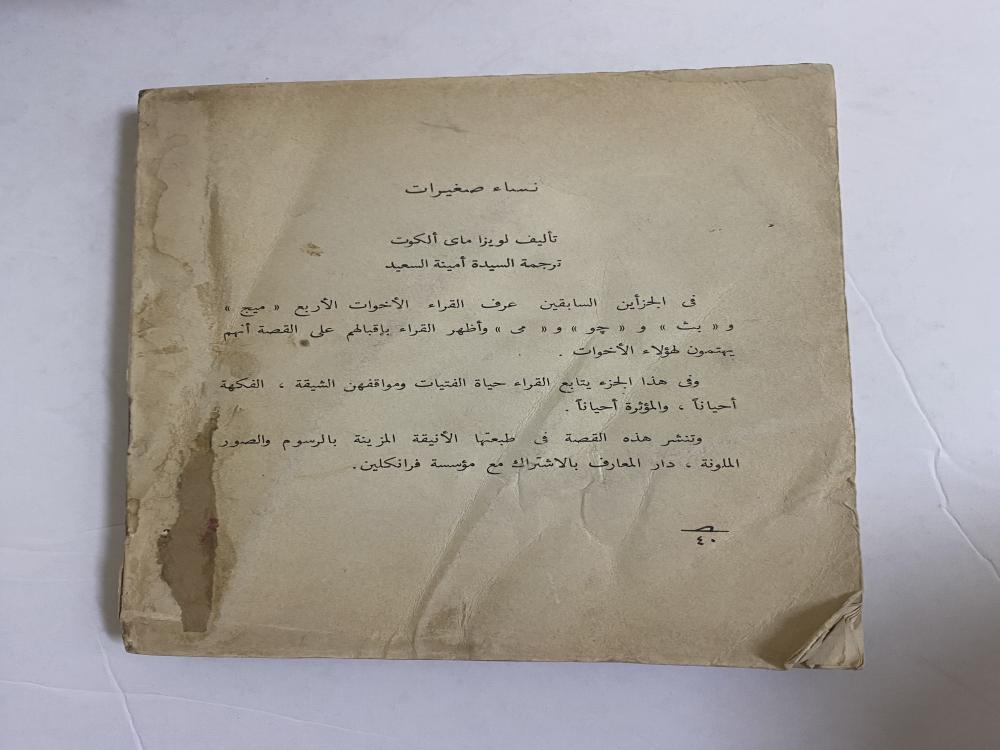 نساء صغيرات
تأليف لويزا ماى ألكوت
ترجمة السيدة أمينة السعيد
فى الجزأين السابقين عرف القراء الأخوات الأربع « ميج »
و « بث » و « چو » و « مى » وأظهر القراء بإقبالهم على القصة أنهم
يهتمون لهؤلاء الأخوات .
وفى هذا الجزء يتابع القراء حياة الفتيات ومواقفهن الشيقة ، الفكهة
أحياناً ، والمؤثرة أحياناً .
وتنشر هذه القصة فى طبعتها الأنيقة المزينة بالرسوم والصور
الملونة ، دار المعارف بالاشتراك مع مؤسسة فرانكلين.
٤٠